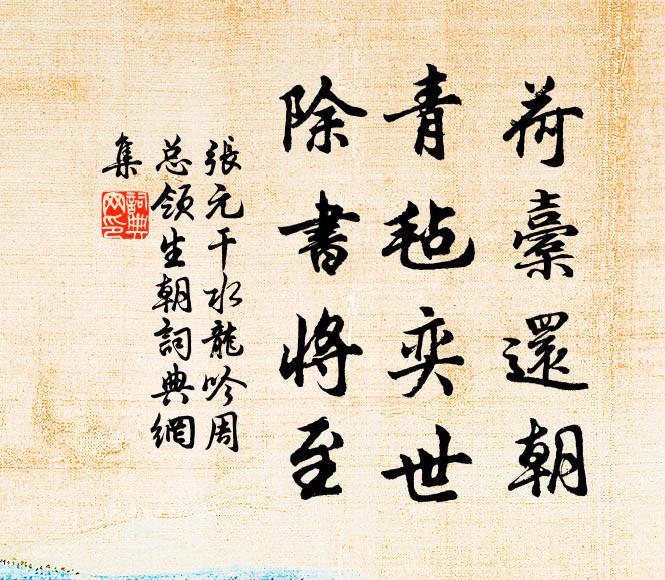 荷橐還朝
青毡奕世
除書將至
張元干水龍吟周
总领生朝詞典網
集
詞典
网印